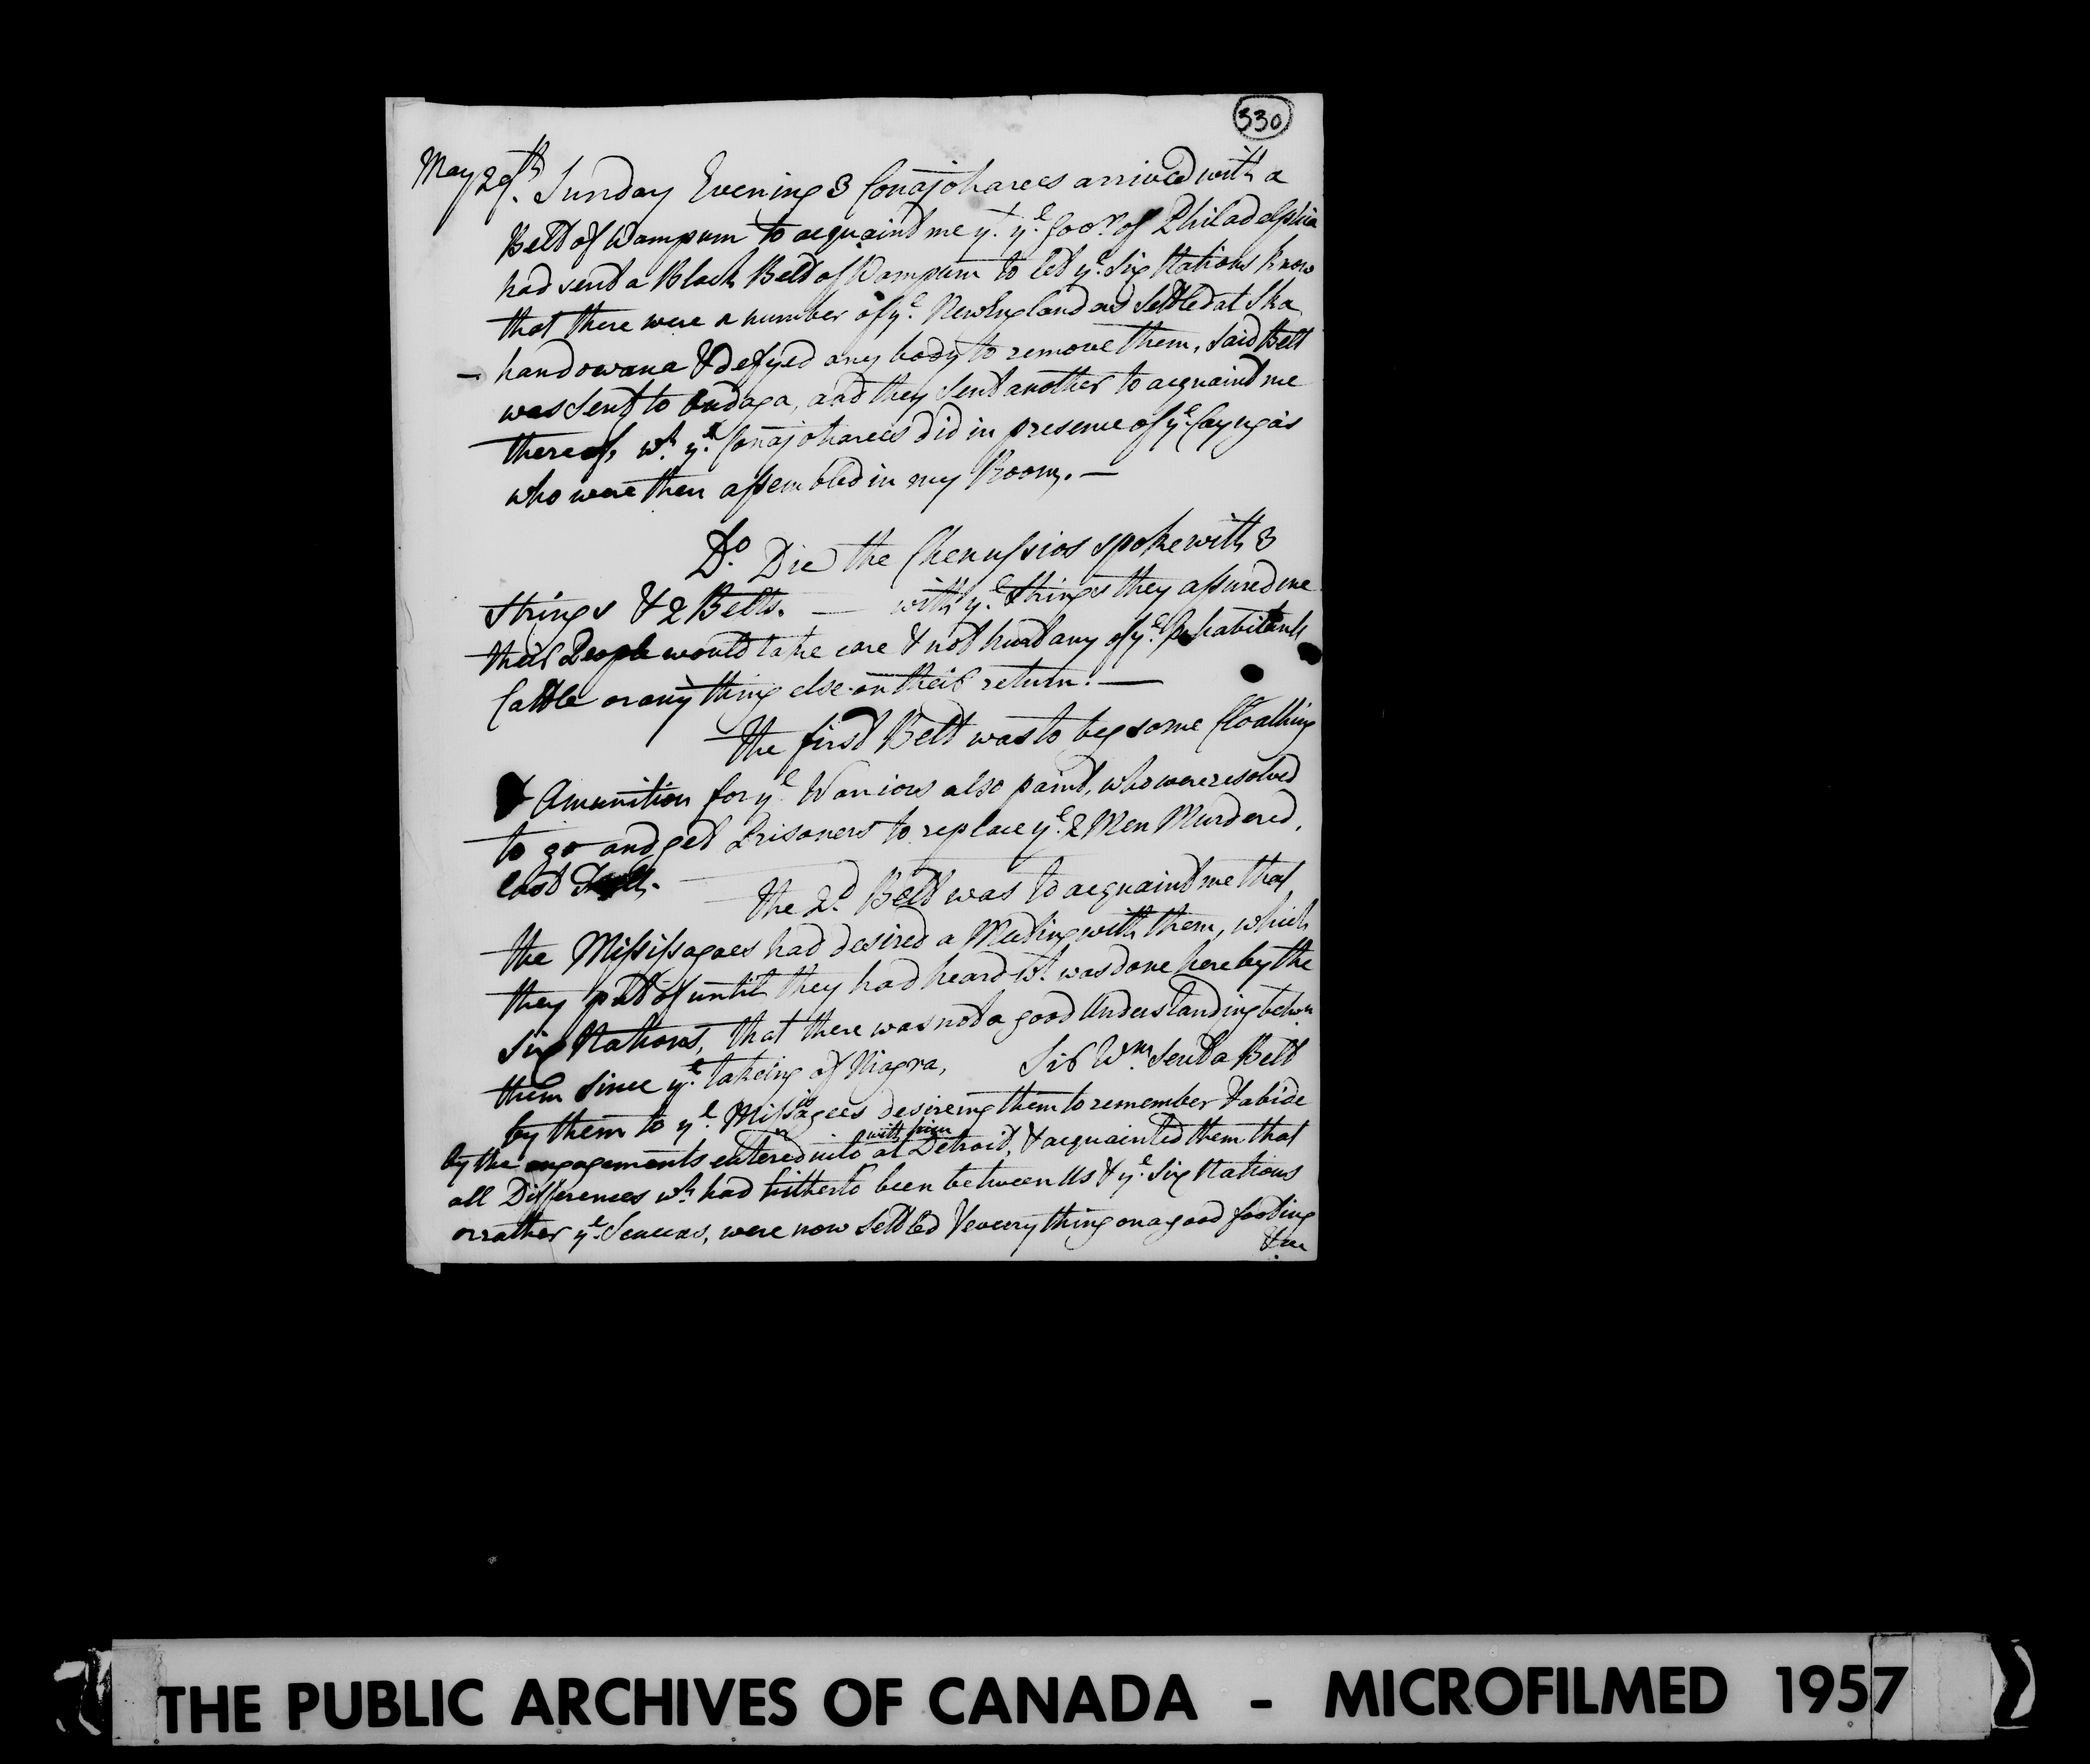 330
May 29th. Sunday Evening 3 Conajoharees arrived with a
Belt of Wampum to acquaint me yt. ye. Govr. of Philadelphia
had sent a Black Belt of Wampum to let ye. Six Nations know
that there were a number of ye. New Englanders settled at Ska
— handowana & defyed any body to remove them, said Belt
was sent to Ondaga, and they sent another to acquaint me
thereof, wh. ye. Conajoharees did in presence of ye. Cayugas
who were then assembled in my Room. —
Do. Die the Chenussios spoke with 3
Strings & 2 Belts. — with ye. Strings they assured me
their People would take care & not hurt any of ye. Inhabitants
Cattle or any thing else on their return. —
The first Belt was to beg some Cloathing
& Amunition for ye. Warriors also paint, who were resolved
to go and get Prisoners to replace ye. 2 Men Murdered,
last
The 2d. Belt was to acquaint me that
the Missisagaes had desired a Meeting with them, which
they put of until they had heard wt. was done here by the
Six Nations, that there was not a good Understanding betwn
them since ye. takeing of Niagra, Sir Wm. sent a Belt
by them to ye. Missisagees desireing them to remember & abide
with him
by the engagements entered into at Detroit, & acquainted them that
all Differences wh. had hitherto been between us & ye. Six Nations
or rather ye. Senecas, were now settled & every thing on a good footing
THE PUBLIC ARCHIVES OF CANADA - MICROFILMED 1957